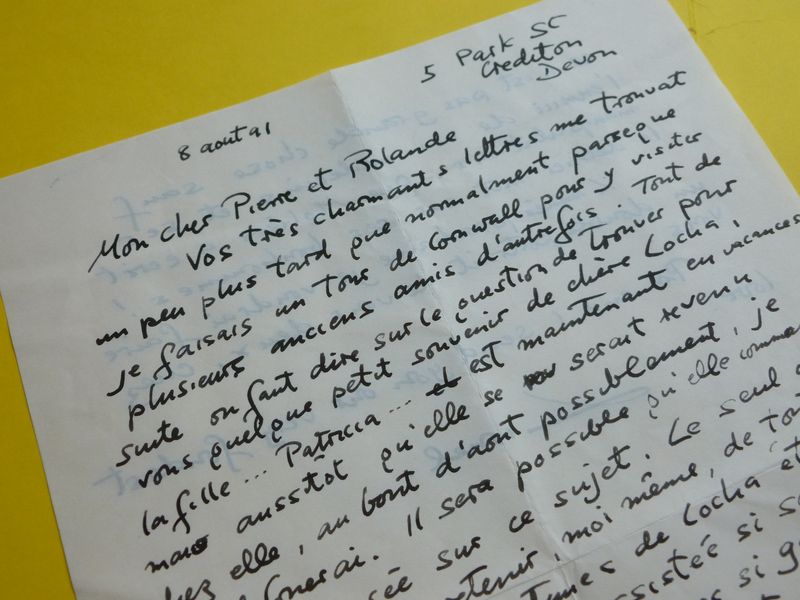 5 Park St
Crediton
Devon
8 aout 91
Mon cher Pierre et Rolande
Vos très charmants lettres me trouvat
un peu plus tard que normalment parseque
je faisais un tour de Cornwall pour y visiter
plusieurs anciens amis d'autrefois. Tout de
suite on faut dire sur le question de trouver pour
vous quelque petit souvenir de chère Locha,
la fille... Patricia... est maintenant en vacances
mais ausstot qu'elle se serait revenu
chez elle, au bout d'aout possiblement, je
Il sera possible qu'elle comme
sur ce sujet. Le seul
retenir, moi même, de tou
de Locha et
assistée si s
si g